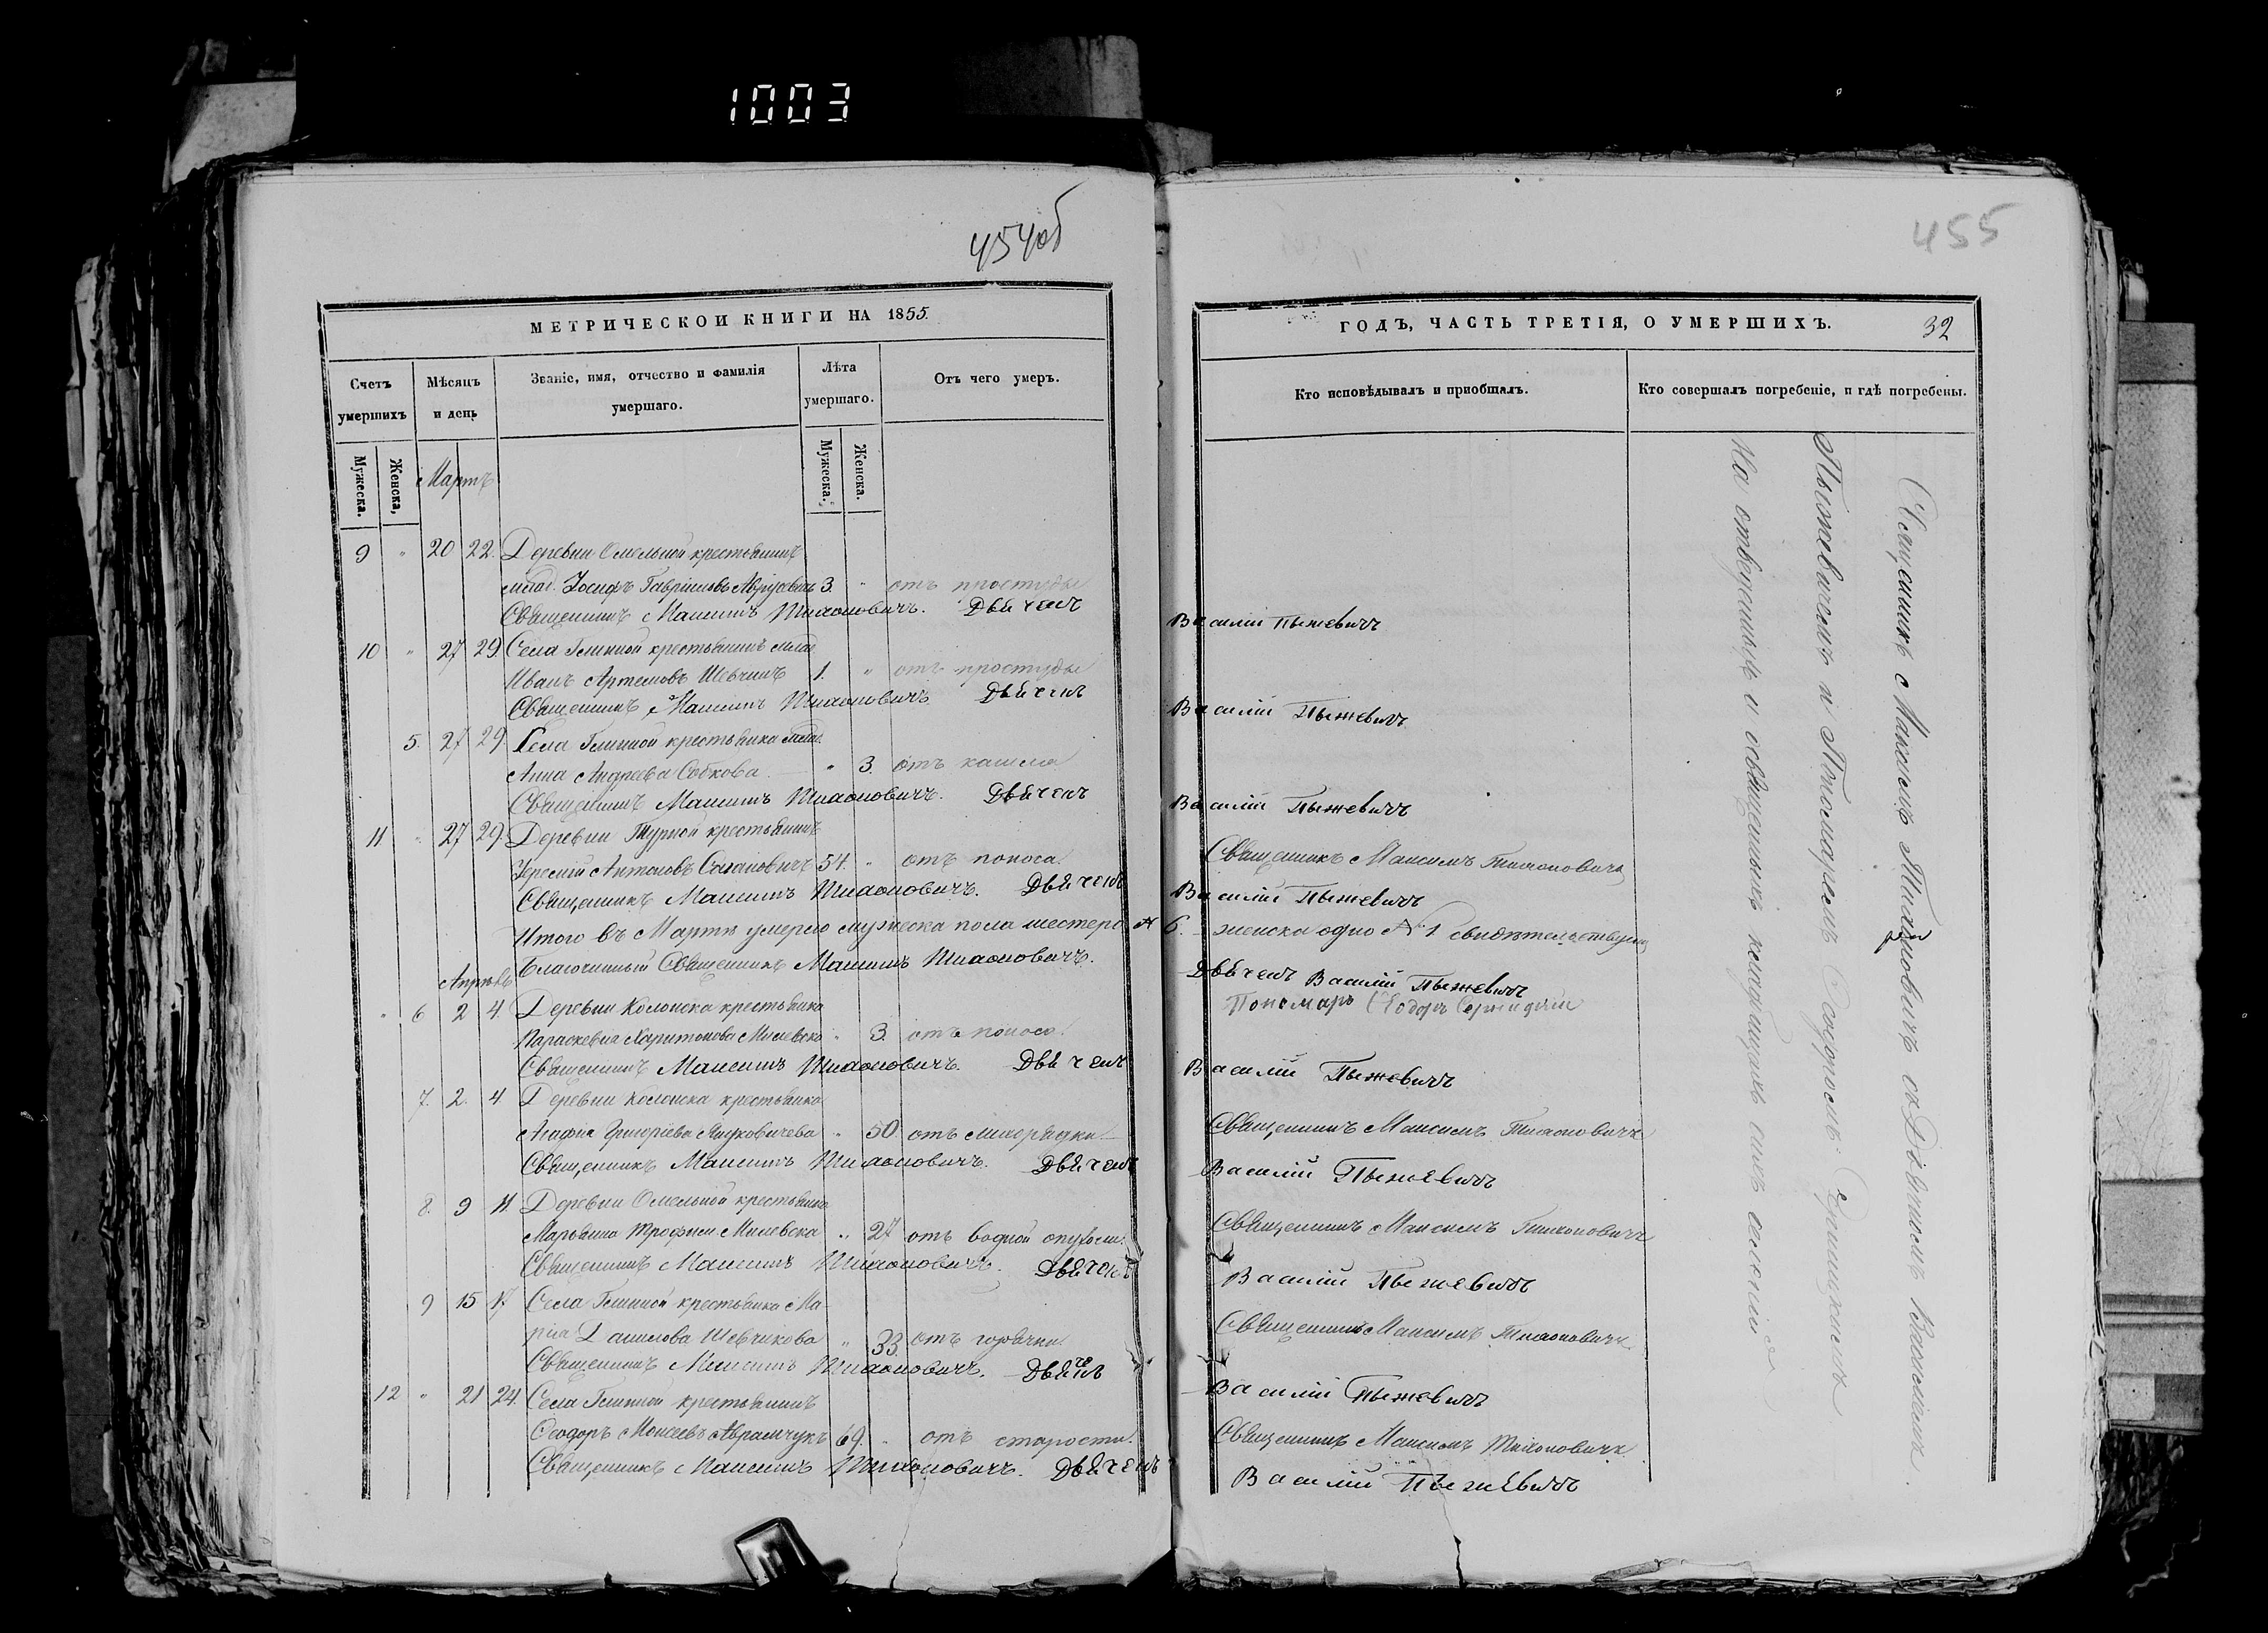 1003
454об
МЕТРИЧЕСКОИ КНИГИ НА 1855.
Счетъ умершихъ
Мѣсяцъ и день
Званіе, имя, отчество и фамилія умершаго.
Лѣта умершаго.
Отъ чего умеръ.
Мужеска. Женска,
Мужеска. Женска.
Мартъ
9 " 20 22. Деревни Омельной крестьянинъ
млад. Іосифъ Гавріиловъ 3. " отъ простуды
Священникъ Максимъ Тихоновичъ. Дьячекъ
10 " 27 29 Села Глинной крестьянинъ млад.
Иванъ Артемовъ Шевчикъ 1. " отъ простуды
Священникъ Максимъ Тихоновичъ Дьячекъ
5. 27 29 Села Глинной крестьянка млад.
Анна Андреева Собкова " 3. отъ кашля
Священникъ Максимъ Тихоновичъ. Дьячекъ
11 " 27 29 Деревни крестьянинъ
Антоновъ 54. " отъ поноса.
Священникъ Максимъ Тихоновичъ. Дьячекъ
Итого въ Мартѣ умерло мужеска пола шестеро №
Благочинный Священникъ Максимъ Тихоновичъ.
Апрѣль
" 6 2 4. Деревни Колонска крестьянка
Параскевія Харитонова Милевска " 3. отъ поноса.
Священникъ Максимъ Тихоновичъ. Дьячекъ
7. 2. 4 Деревни Колонска крестьянка
Агафія Григоріева " 50. отъ лихорадки.
Священникъ Максимъ Тихоновичъ. Дьячекъ
8. 9 11. Деревни Омельной крестьянка
Марьяна Трофим. Милевска " 27 отъ водной опухоли.
Священникъ Максимъ Тихоновичъ. Дьячекъ
9 15 17 Села Глинной крестьянка Ма-
рія Данилова Шевчикова " 33. отъ горячки.
Священникъ Максимъ Тихоновичъ. Дьячекъ
12 " 21 24. Села Глинной крестьянинъ
Ѳеодоръ Моисеевъ Аврамчукъ 69. " отъ старости.
Священникъ Максимъ Тихоновичъ. Дьячекъ
455
ГОДЪ, ЧАСТЬ ТРЕТІЯ, О УМЕРШИХЪ. 32
Кто исповѣдывалъ и пріобщалъ.
Кто совершалъ погребеніе, и гдѣ погребены.
Василій Пыжевичъ
Василій Пыжевичъ
Василій Пыжевичъ
Священникъ Максимъ Тихоновичъ
Василій Пыжевичъ
6. женска одно № 1 свидѣтельствуемъ
Дьячекъ Василій Пыжевичъ
Пономарь Ѳеодоръ
Василій Пыжевичъ
Священникъ Максимъ Тихоновичъ
Василій Пыжевичъ
Священникъ Максимъ Тихоновичъ
Василій Пыжевичъ
Священникъ Максимъ Тихоновичъ
Василій Пыжевичъ
Священникъ Максимъ Тихоновичъ
Василій Пыжевичъ
Священникъ Максимъ Тихоновичъ съ Дьячкомъ Василіемъ
Пыжевичемъ и Пономаремъ Ѳеодоромъ
На отведенномъ и освященномъ кладбищѣ